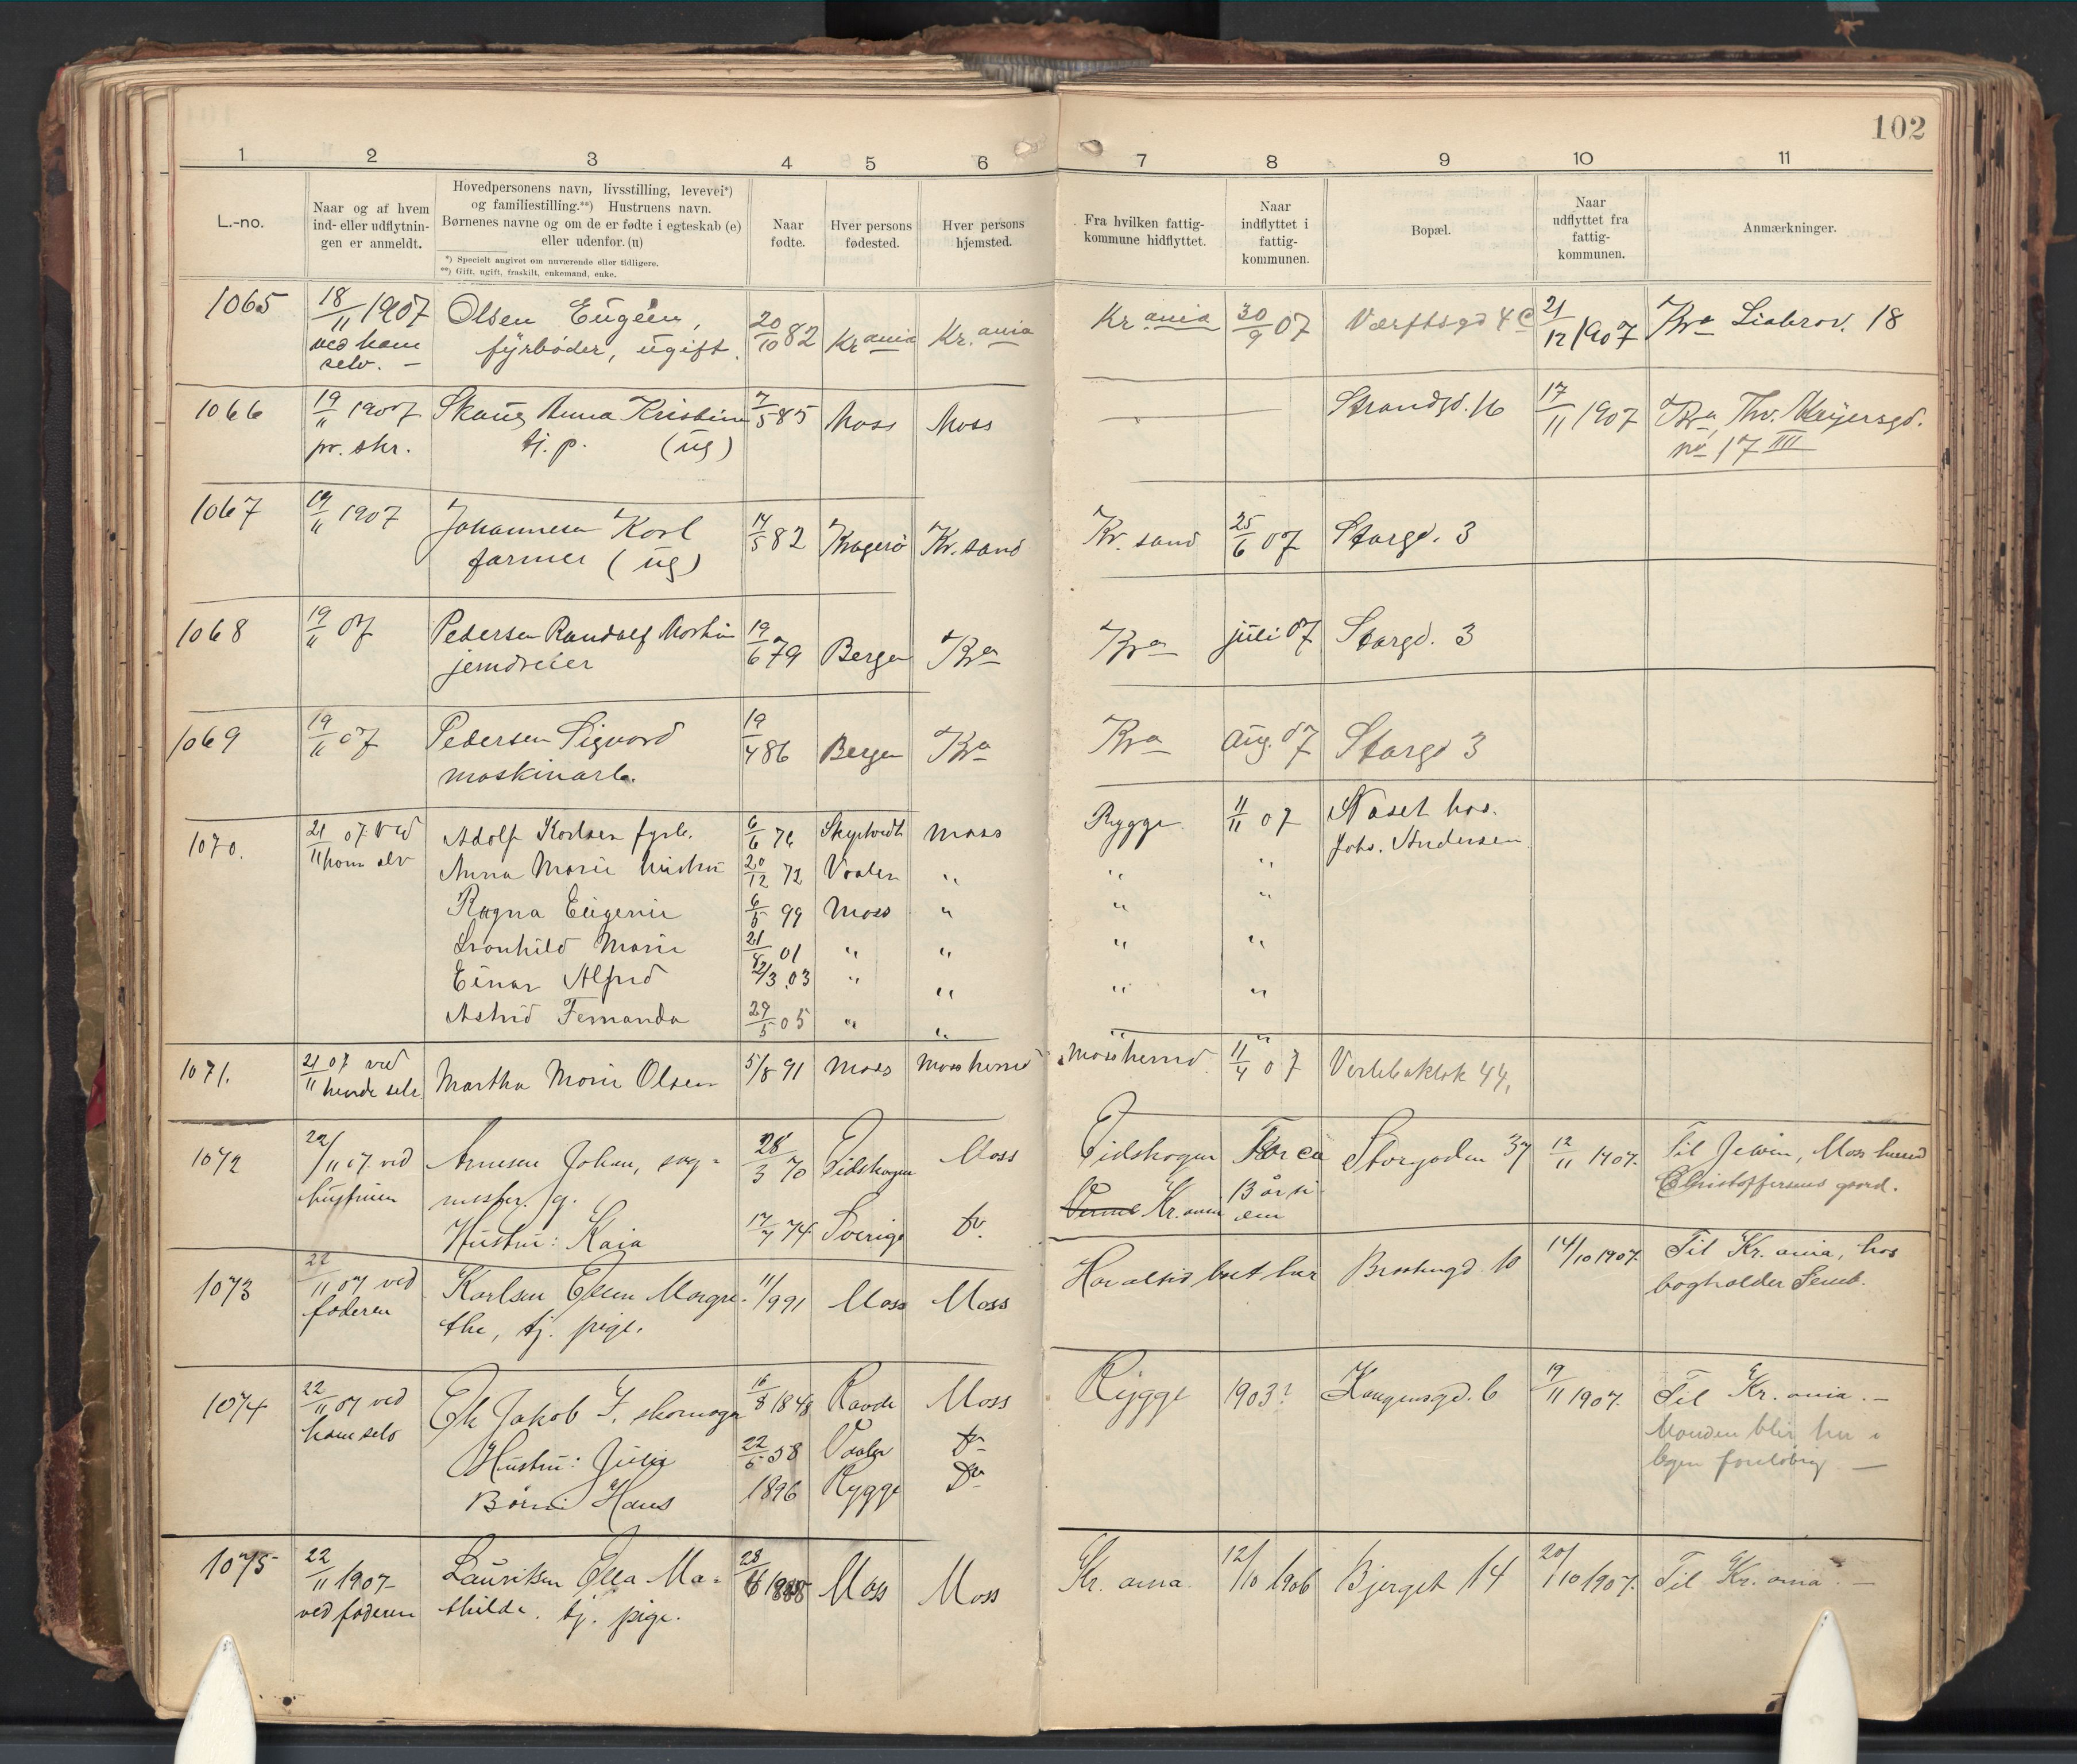 102
1 2 3 4 5 6 7 8 9 10 11
L.-no.
Naar og af hvem
ind- eller udflytnin-
gen er anmeldt.
Hovedpersonens navn, livsstilling, levevei*)
og familiestilling.**) Hustruens navn.
Børnenes navne og om de er fødte i egteskab (e)
eller udenfor. (u)
*) Specielt angivet om nuværende eller tidligere.
**) Gift, ugift, fraskilt, enkemand, enke.
Naar
fødte.
Hver persons
fødested.
Hver persons
hjemsted.
Fra hvilken fattig-
kommune hidflyttet.
Naar
indflyttet i
fattig-
kommunen.
Bopæl.
Naar
udflyttet fra
fattig-
kommunen.
Anmærkninger.
1065 18/11 1907 Olsen Eugèn, 20/10 82 Kr ania Kr. ania Kr ania 30/9 07 Værftsgd 4 c 21/12 1907 Kra Liabrov. 18
ved ham fyrbøder, ugift.
selv. —
1066 19/11 1907 Skaug Anna Kristine 7/5 85 Moss Moss — — Strandgd. 16 17/11 1907 Kra, Thv. Meyersgd.
pr. skr. tj. p. (ug) no 17 III
1067 19/11 1907 Johannesen Karl 14/5 82 Kragerö Kr. sand Kr. sand 25/6 07 Storgd. 3
farmer (ug)
1068 19/11 07 Pedersen Randolf Martin 19/6 79 Bergen Kra Kra juli 07 Storgd. 3
jerndreier
1069 19/11 07 Pedersen Sigvard 19/4 86 Bergen Kra Kra Aug. 07 Storgd 3
maskinarb.
1070. 21/11 07 ved Adolf Karlsen fyrb. 6/6 76 Skiptvedt Moss Rygge 11/11 07 Næset hos.
ham selv Johs. Andersen
Anna Marie hustru 20/12 72 Vaaler " " "
Ragna Eugenie 6/5 99 Moss " " "
Svanhild Marie 21/8 01 " " " "
Einar Alfred 2/3 03 " " " "
Astrid Fernanda 29/5 05 " " " "
1071. 21/11 07 ved Martha Marie Olsen 5/8 91 Moss Moss herred Moss herred. 11/4 07 Verlebakløk 44,
hende selv
1072 22/11 07 ved Arnesen Johan, sag- 28/3 70 Eidskogen Moss Eidskogen For ca Storgaden 37 12/11 1907. Til Jeløen, Moss herred
hustruen mester. g. Kr. ania 13 år si Christoffersens gaard.
Hustru: Kaia 17/7 74 Sverige Do. den
1073 22/11 07 ved Karlsen Ellen Margre- 11/9 91 Moss Moss Har altid boet her 10 14/10 1907. Til Kr. ania, hos
faderen the, tj. pige. bogholder Semb.
1074 22/11 07 ved Ek Jakob F. skomager 16/8 1848 Raade Moss Rygge 1903? Kongensgd. 6 19/11 1907. Til Kr. ania. —
ham selv Manden blir her i
Hustru: Julie 22/5 58 Vaaler Do byen foreløbig. —
Børn: Hans 1896 Rygge Do
1075 22/11 1907 Lauritsen Ella Ma- 28/ Moss Moss Kr. ania. 12/10 1906 Bjerget 14 20/10 1907. Til Kr. ania. —
ved faderen thilde. tj. pige.